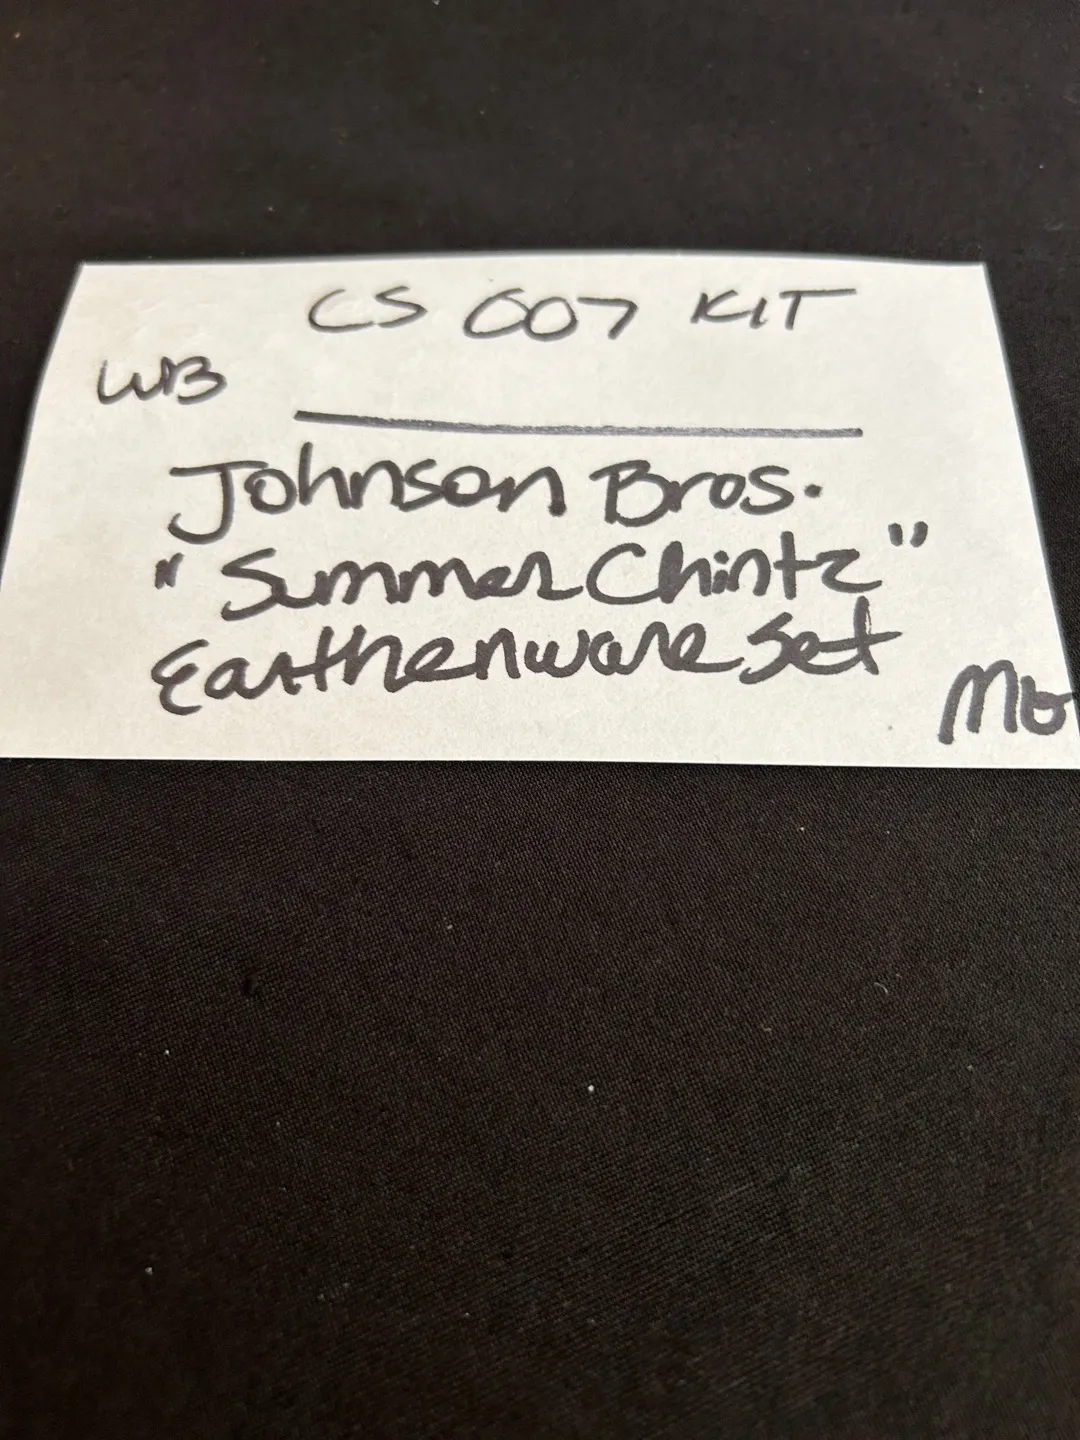 CS 007 KIT
WB
Johnson Bros.
"Summer Chintz"
Earthenware Set